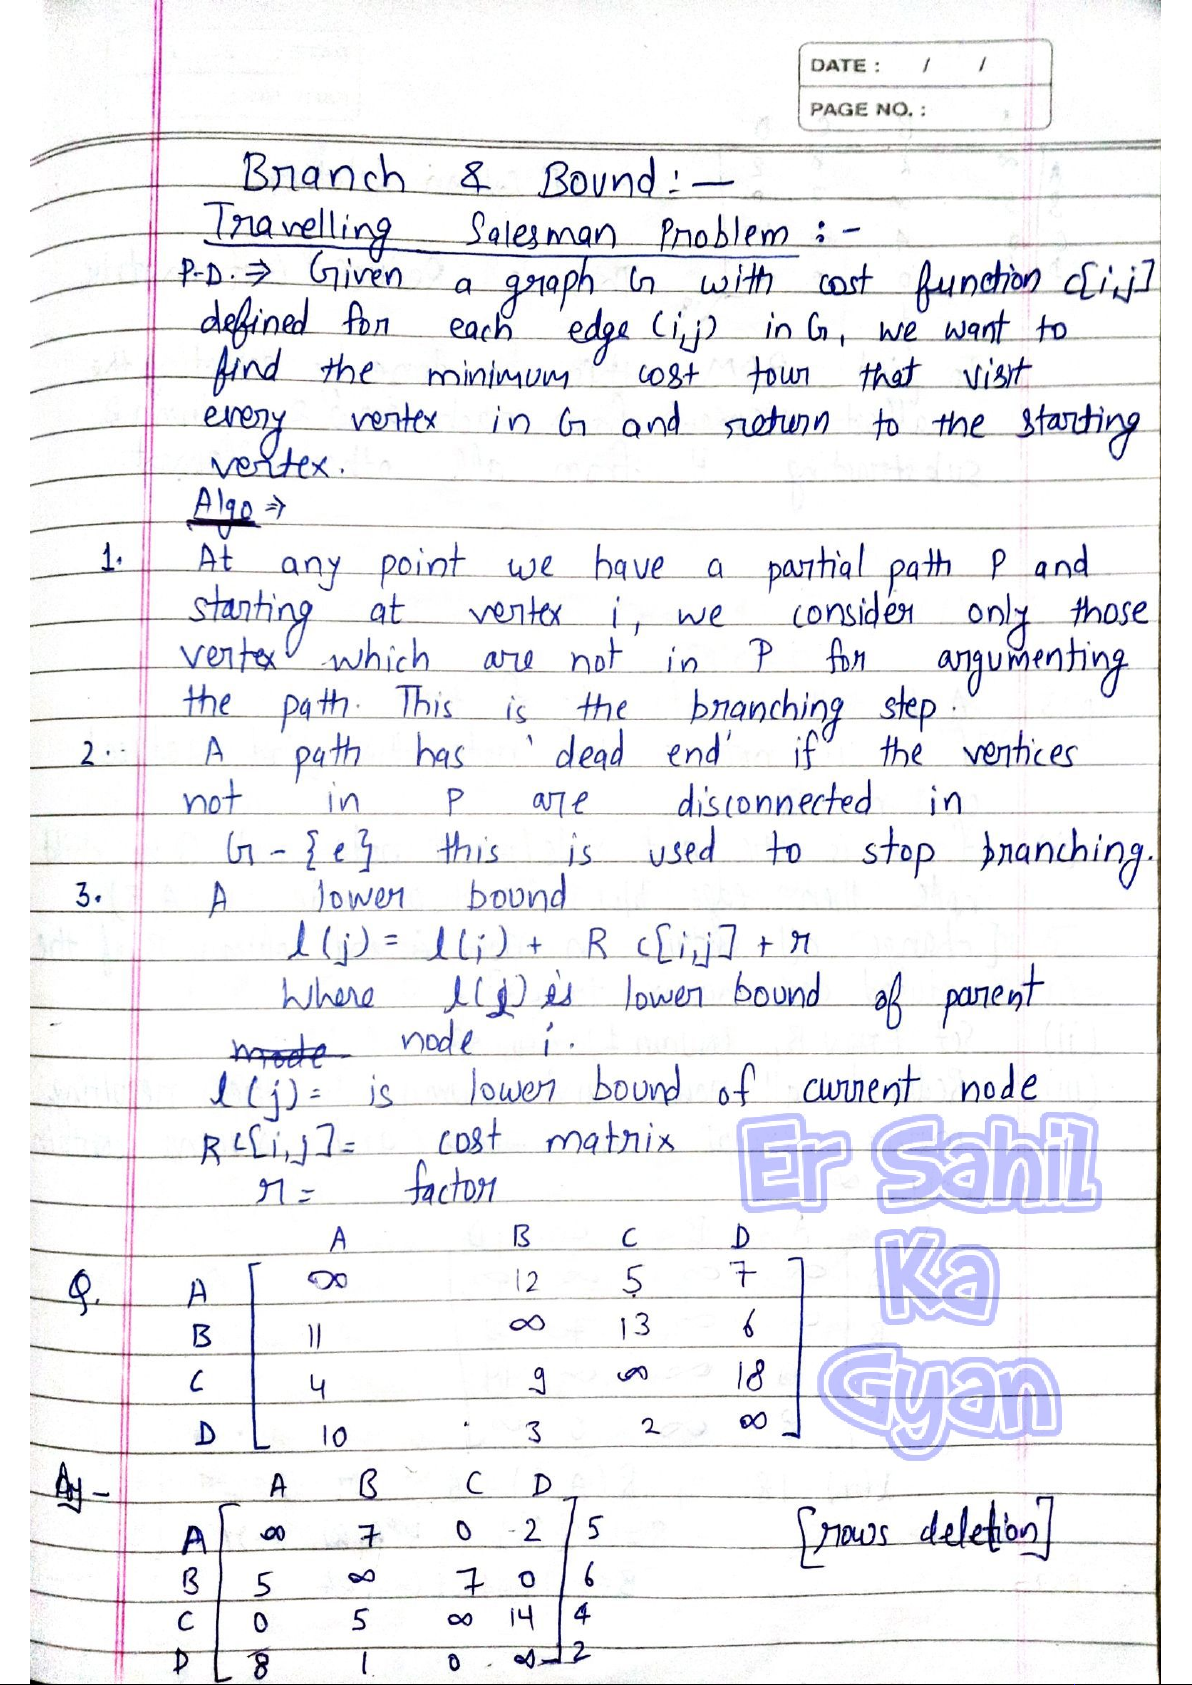 DATE : / /
PAGE NO. :
Branch & Bound : —
Travelling Salesman Problem : -
P.D. ⇒ Given a graph G with cost function c[i,j]
defined for each edge (i,j) in G, we want to
find the minimum cost tour that visit
every vertex in G and return to the starting
vertex.
Algo ⇒
1. At any point we have a partial path P and
starting at vertex i, we consider only those
vertex which are not in P for argumenting
the path. This is the branching step.
2. A path has 'dead end' if the vertices
not in P are disconnected in
G - {e} this is used to stop branching.
3. A lower bound
l(j) = l(i) + R c[i,j] + r
Where l(j) is lower bound of parent
node i.
l(j) = is lower bound of current node
R c[i,j] = cost matrix
r = factor
Er Sahil
Ka
Gyan
A B C D
Q. A ∞ 12 5 7
B 11 ∞ 13 6
C 4 9 ∞ 18
D 10 3 2 ∞
A B C D
A ∞ 7 0 2 5 [rows deletion]
B 5 ∞ 7 0 6
C 0 5 ∞ 14 4
D 8 1 0 ∞ 2